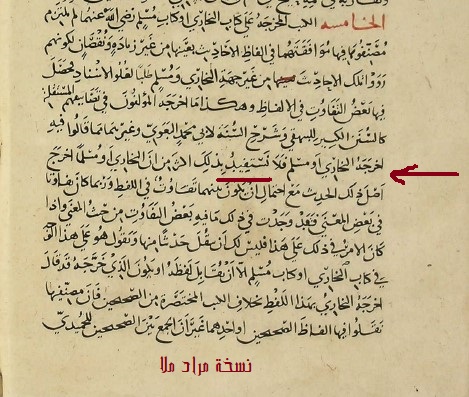 الخامسه الكتب المخرجه على كتاب البخاري او كتاب مسلم رضي الله عنهما لم يلتزم
مصنفوها فيها موافقتهما في الفاظ الاحاديث بعينها من غير زيادة ونقصان لكونهم
رووا تلك الاحاديث من غير جهة البخاري ومسلم طلبا لعلو الاسناد فحصل
فيها بعض التفاوت في الالفاظ وهكذا ما اخرجه المؤلفون في تصانيفهم المستقلة
كالسنن الكبير للبيهقي وشرح السنة لابي محمد البغوي وغيرهما مما قالوا فيه
اخرجه البخاري او مسلم فلا تستفيد بذلك اكثر من ان البخاري او مسلما اخرج
اصل ذلك الحديث مع احتمال ان يكون بينهما تفاوت في اللفظ وربما كان تفاوتا
في بعض المعنى فقد وجدت في ذلك ما فيه بعض التفاوت من حيث المعنى واذا
كان الامر في ذلك على هذا فليس لك ان تنقل حديثا منها وتقول هو على هذا
في كتاب البخاري او كتاب مسلم الا ان تقابل لفظه او يكون الذي خرجه قد قال
اخرجه البخاري بهذا اللفظ بخلاف الكتب المختصرة من الصحيحين فان مصنفيها
نقلوا فيها الفاظ الصحيحين او احدهما غير ان الجمع بين الصحيحين للحميدي
نسخة مراد ملا